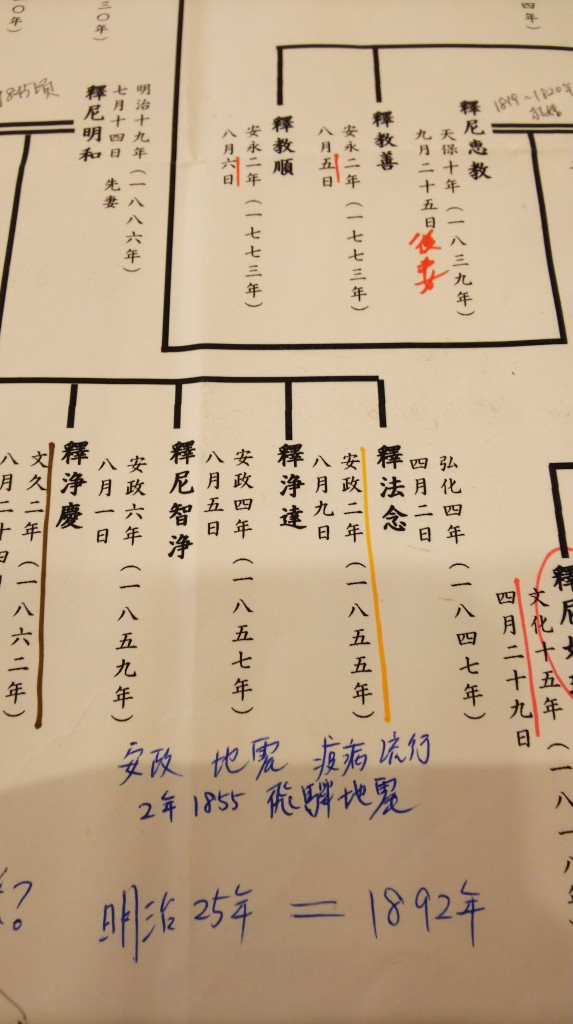 四年）
三〇年）
〇年）
1819～1820年
釋尼恵教
天保十年（一八三九年）
九月二十五日
後妻
釋教善
安永二年（一七七三年）
八月五日
釋教順
安永二年（一七七三年）
八月六日
明治十九年（一八八六年）
七月十四日　先妻
釋尼明和
釋尼
文化十五年（一八一八年）
四月二十九日
弘化四年（一八四七年）
四月二日
釋法念
安政二年（一八五五年）
八月九日
釋浄達
安政四年（一八五七年）
八月五日
釋尼智浄
安政六年（一八五九年）
八月一日
釋浄慶
文久二年（一八六二年）
八月二十四日
安政 地震 疫病流行
2年1855 飛騨地震
明治25年 = 1892年